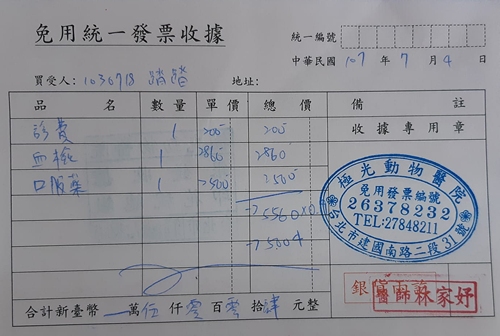 免用統一發票收據
統一編號
中華民國 107 年 7 月 4 日
買受人：1030718 踏踏 地址：
品名 數量 單價 總價 備註
診費 1 200 200 收據專用章
血檢 1 2860 2860
口服藥 1 2500 2500
5560
5004
極光動物醫院
免用發票編號
26378232
TEL:27848211
台北市建國南路二段31號
醫師林家妤
合計新臺幣 萬伍仟零百零拾肆元整